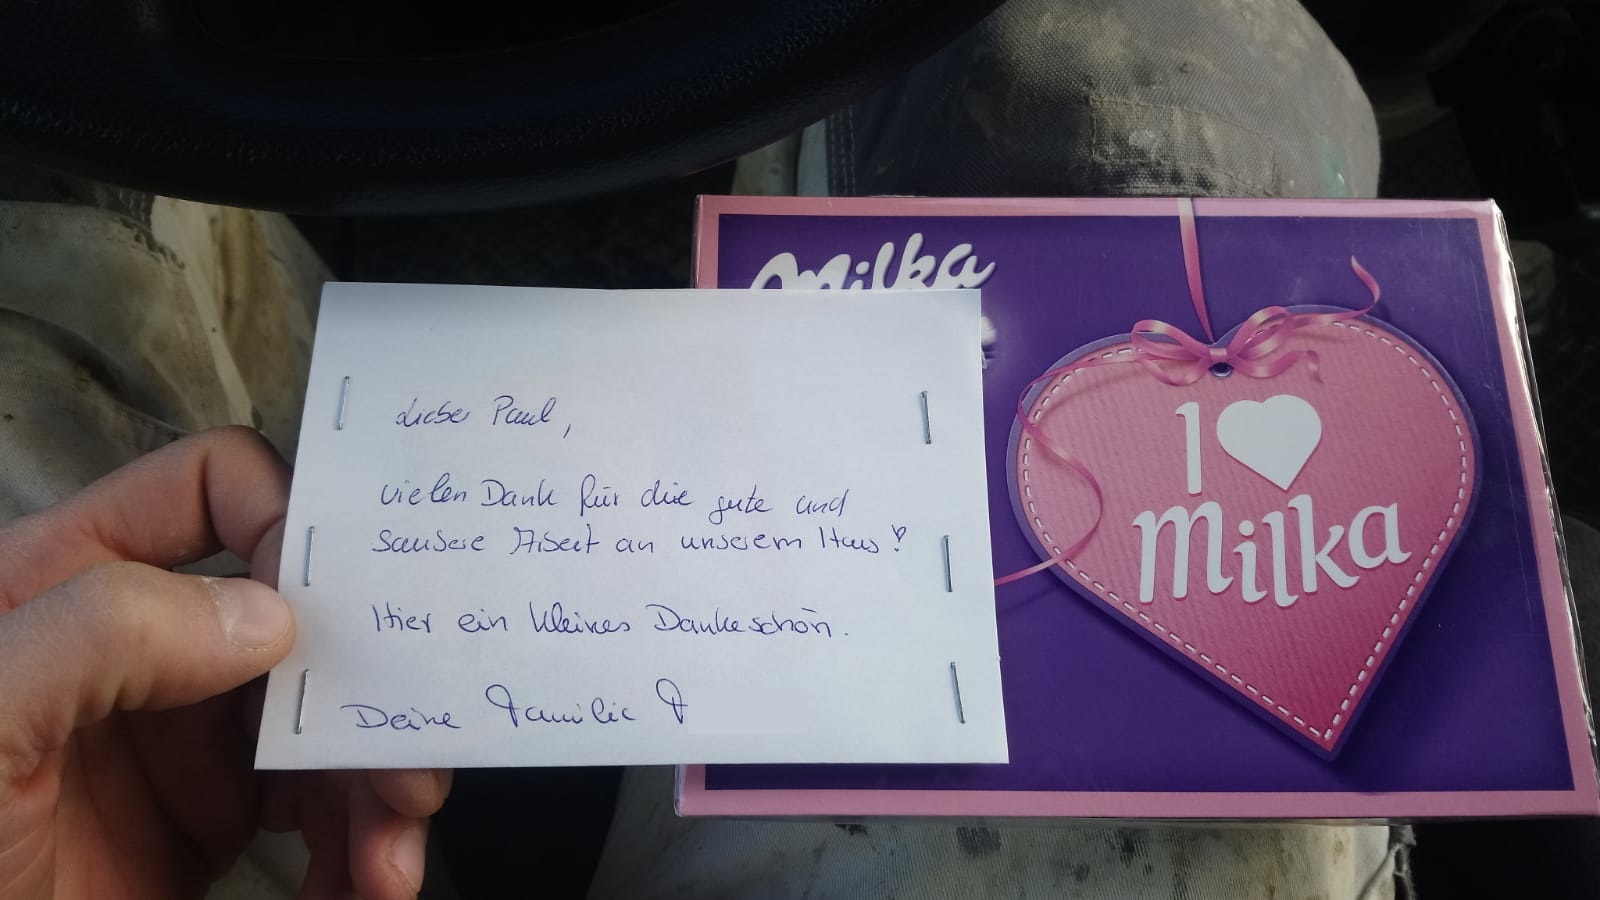 Lieber Paul,
vielen Dank für die gute und
saubere Arbeit an unserem Haus!
Hier ein kleines Dankeschön.
Deine Familie F
Milka
I
Milka